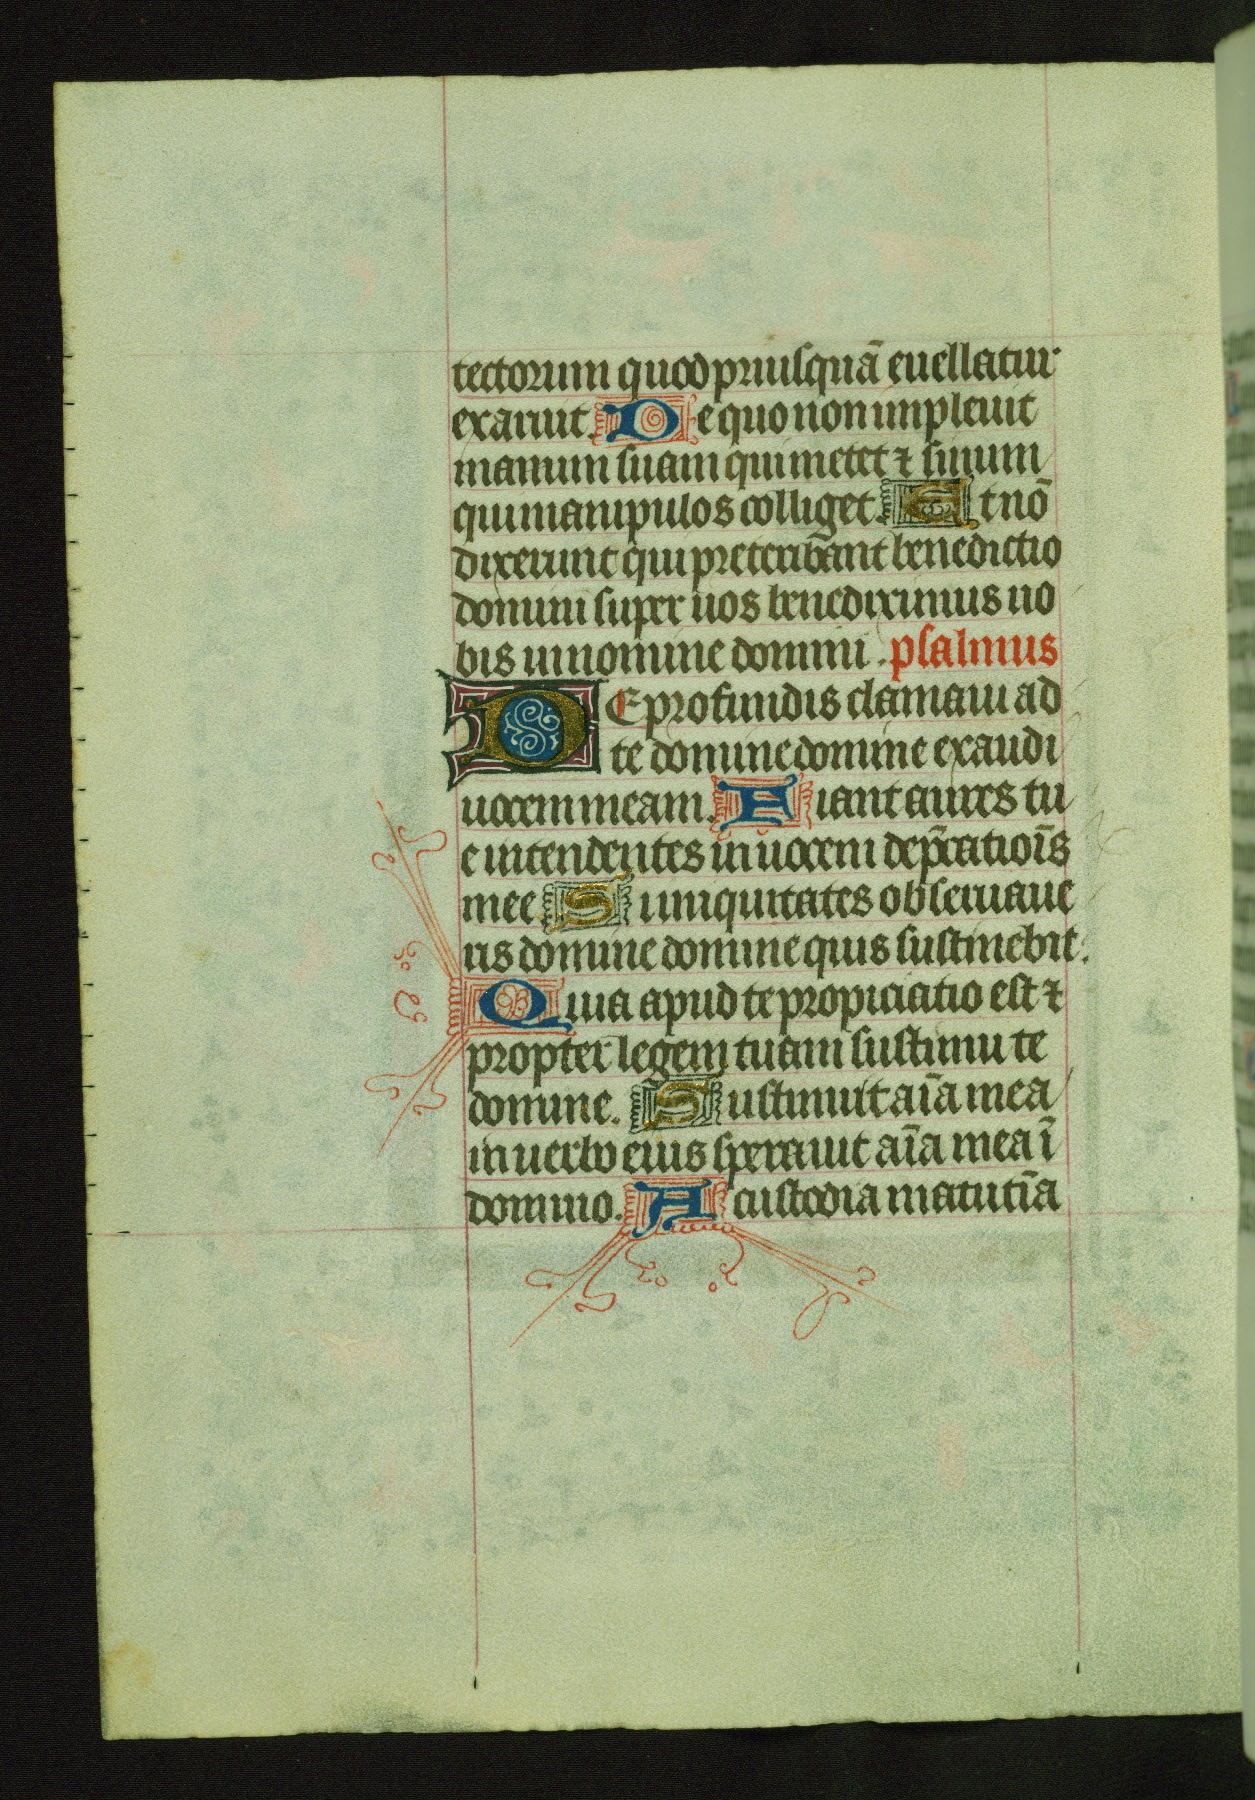 tectorum quod priusquā euellatur
exaruit. De quo non impleuit
manum suam qui metet ⁊ sinum
qui manipulos colliget. Et nō
dixerunt qui preteribāt benedictio
domini super uos benediximus uo
bis in nomine domini. psalmus
DE profundis clamaui ad
te domine domine exaudi
uocem meam. Fiant aures tu
e intendentes in uocem dep̄catiōis
mee Si iniquitates obseruaue
ris domine domine quis sustinebit.
Quia apud te propiciatio est ⁊
propter legem tuam sustinui te
domine. Sustinuit aīa mea
in uerbo eius sperauit aīa mea ī
domino. A custodia matutīa